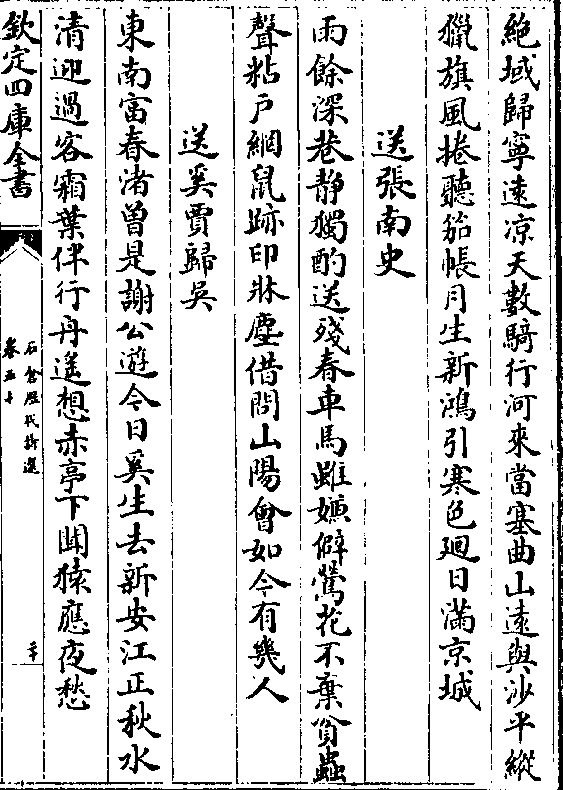 絶域歸寧遠凉天數騎行河來當塞曲山遠與沙平縱
獵旗風捲聽笳帳月生新鴻引寒色廻日滿京城
送張南史
雨餘深巷静獨酌送殘春車馬雖嫌僻鶯花不棄貧蟲
聲粘户網鼠跡印牀塵借問山陽會如今有幾人
送奚賈歸吳
東南富春渚曾是謝公遊今日奚生去新安江正秋水
清迎過客霜葉伴行舟遥想赤亭下聞猿應夜愁
欽定四庫全書
石倉歷代詩選
卷五十